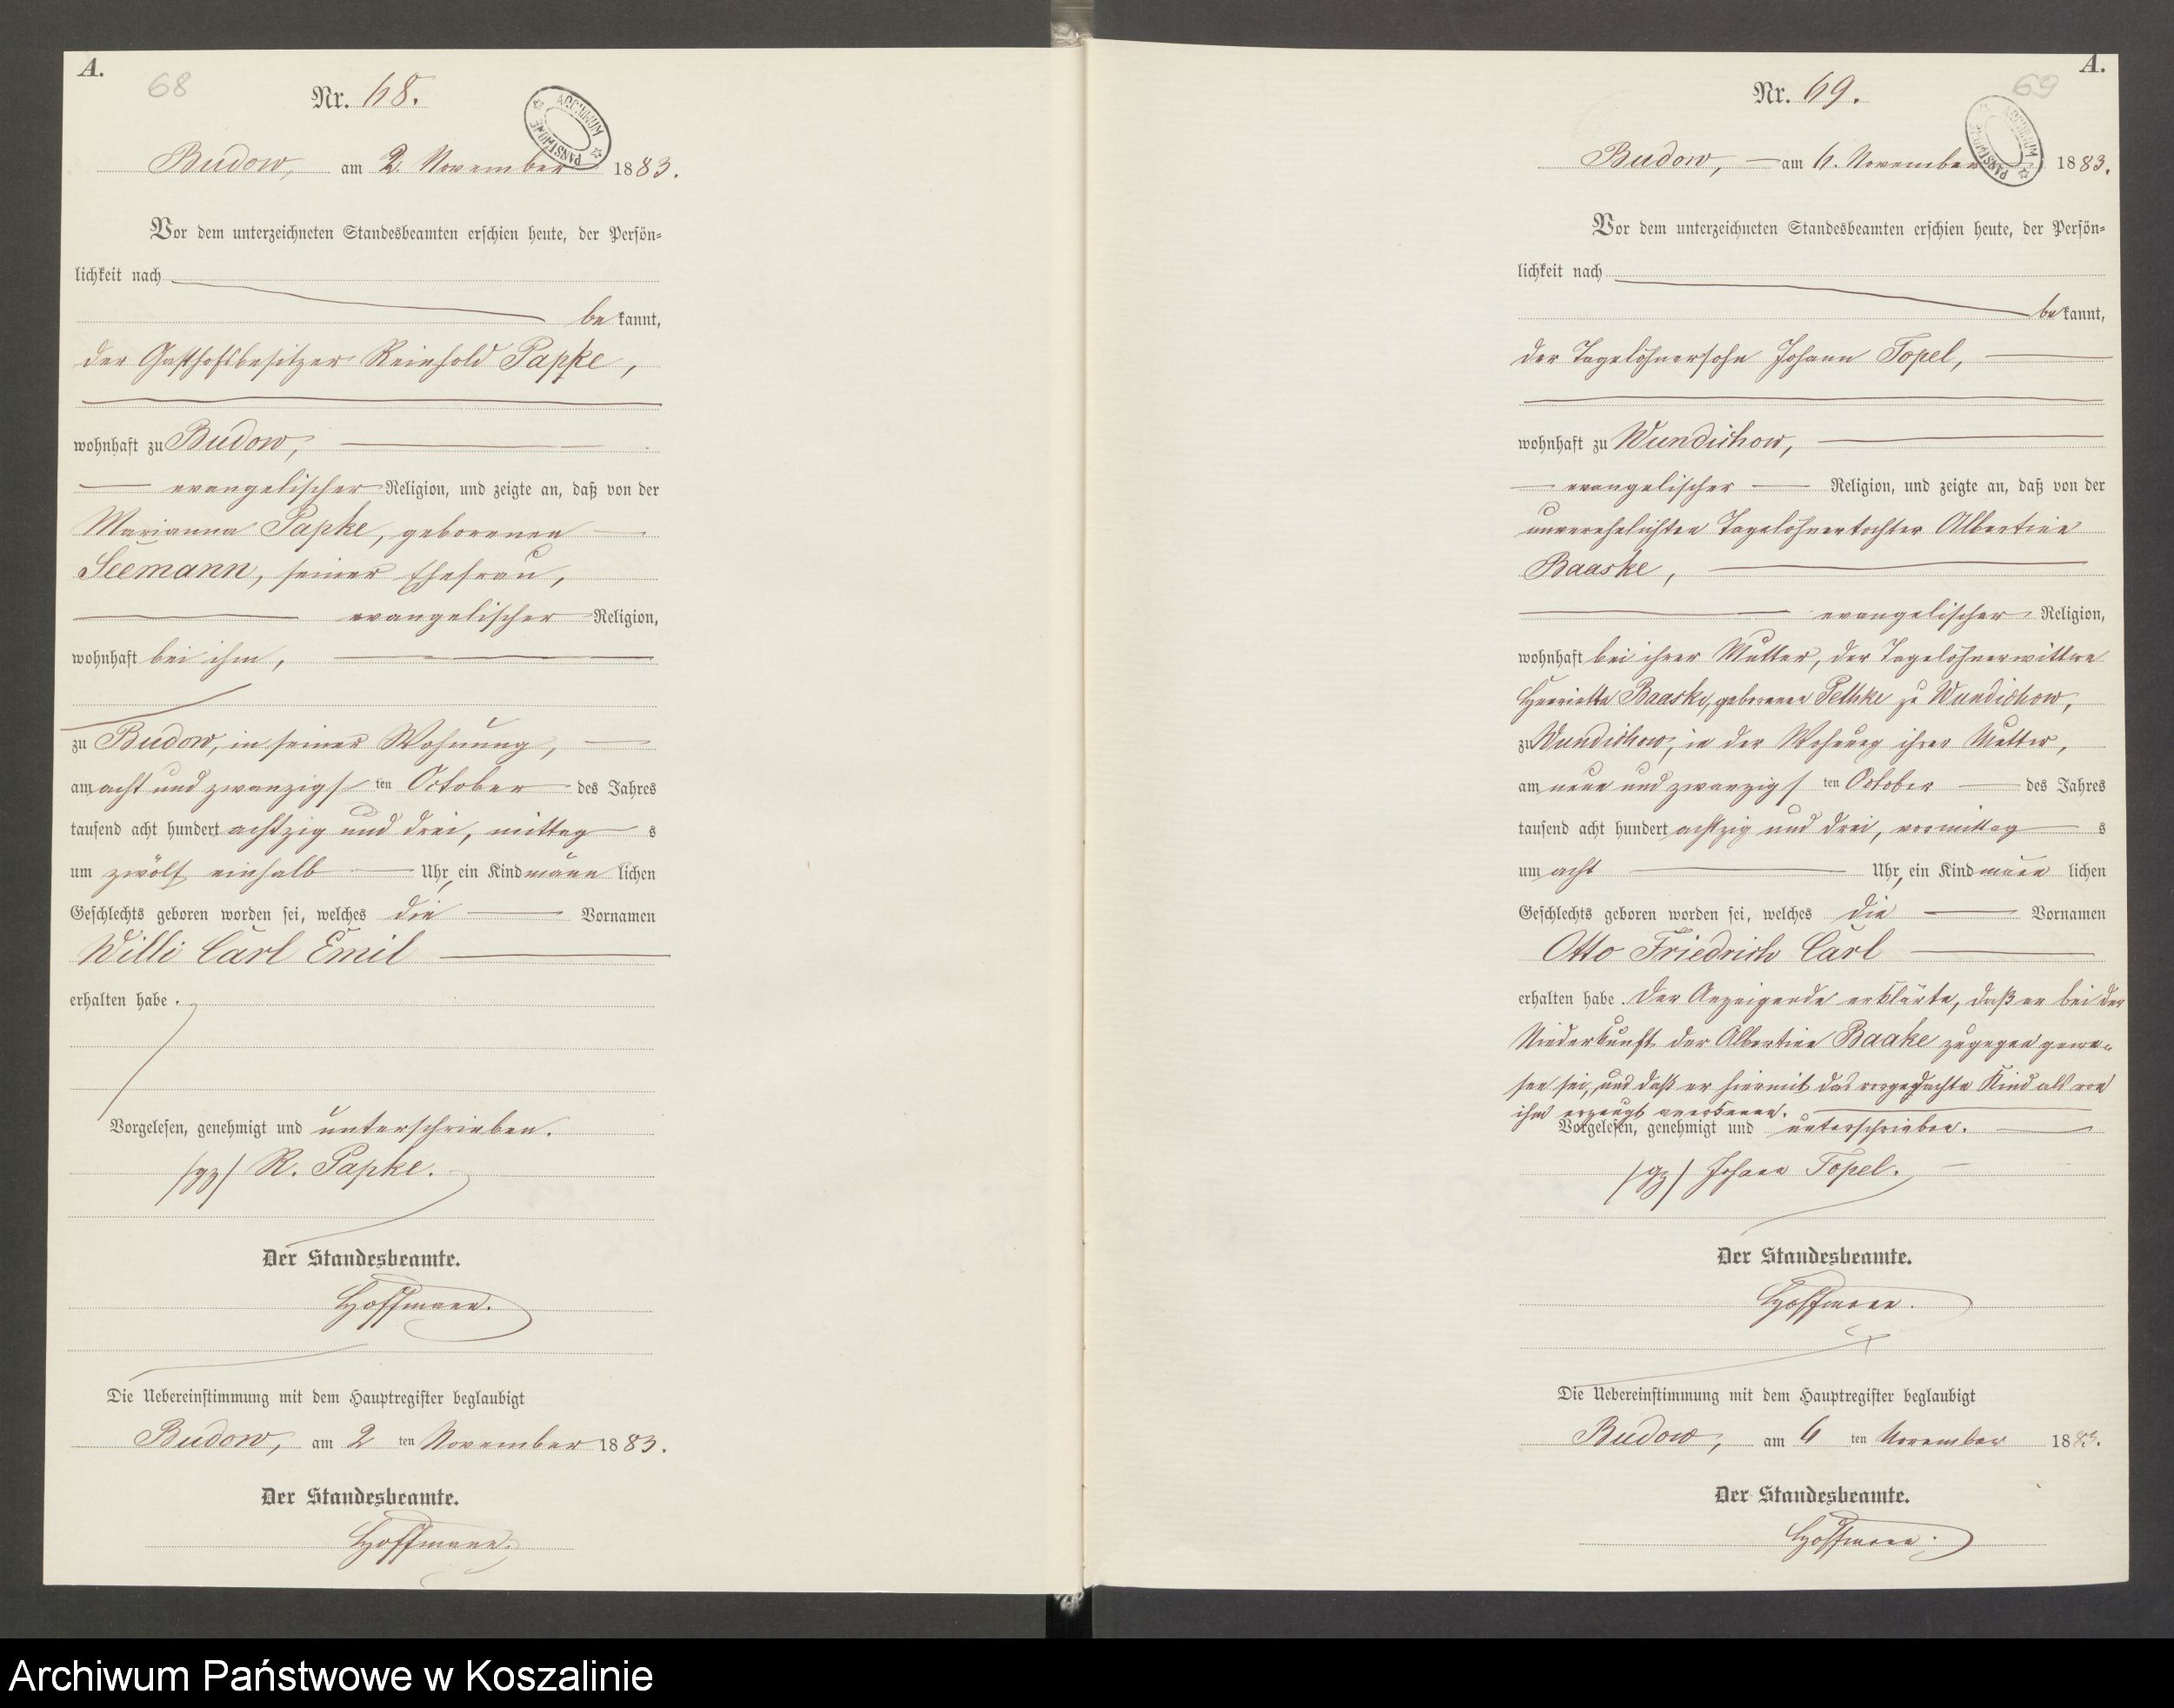 A.
68
Nr. 68.
ARCHIWUM PAŃSTWOWE
Budow, am 2. November 1883.
Vor dem unterzeichneten Standesbeamten erschien heute, der Persön-
lichkeit nach
bekannt,
der Gasthofsbesitzer Reinhold Papke,
wohnhaft zu Budow,
evangelischer Religion, und zeigte an, daß von der
Marianna Papke, geborenen
Seemann, seiner Ehefrau,
evangelischer Religion,
wohnhaft bei ihm,
zu Budow, in seiner Wohnung,
am acht und zwanzigsten October des Jahres
tausend acht hundert achtzig und drei, mittags
um zwölf einhalb Uhr, ein Kind männlichen
Geschlechts geboren worden sei, welches die Vornamen
Willi Carl Emil
erhalten habe.
Vorgelesen, genehmigt und unterschrieben.
/gz/ R. Papke.
Der Standesbeamte.
Hoffmann.
Die Uebereinstimmung mit dem Hauptregister beglaubigt
Budow, am 2 ten November 1883.
Der Standesbeamte.
Hoffmann.
A.
69
Nr. 69.
ARCHIWUM PAŃSTWOWE
Budow, am 6. November 1883.
Vor dem unterzeichneten Standesbeamten erschien heute, der Persön-
lichkeit nach
bekannt,
der Tagelöhnersohn Johann Topel,
wohnhaft zu Wundichow,
evangelischer Religion, und zeigte an, daß von der
unverehelichten Tagelöhnertochter Albertine
Baaske,
evangelischer Religion,
wohnhaft bei ihrer Mutter, der Tagelöhnerwittwe
Henriette Baaske, geborenen Pethke zu Wundichow,
zu Wundichow, in der Wohnung ihrer Mutter,
am neun und zwanzigsten October des Jahres
tausend acht hundert achtzig und drei, vormittags
um acht Uhr, ein Kind männlichen
Geschlechts geboren worden sei, welches die Vornamen
Otto Friedrich Carl
erhalten habe. Der Anzeigende erklärte, daß er bei der
Niederkunft der Albertine Baake zugegen gewe-
sen sei, und daß er hiermit das vorgedachte Kind als von
ihm erzeugt anerkenne.
Vorgelesen, genehmigt und unterschrieben.
/gz/ Johann Topel.
Der Standesbeamte.
Hoffmann.
Die Uebereinstimmung mit dem Hauptregister beglaubigt
Budow, am 6 ten November 1883.
Der Standesbeamte.
Hoffmann.
Archiwum Państwowe w Koszalinie